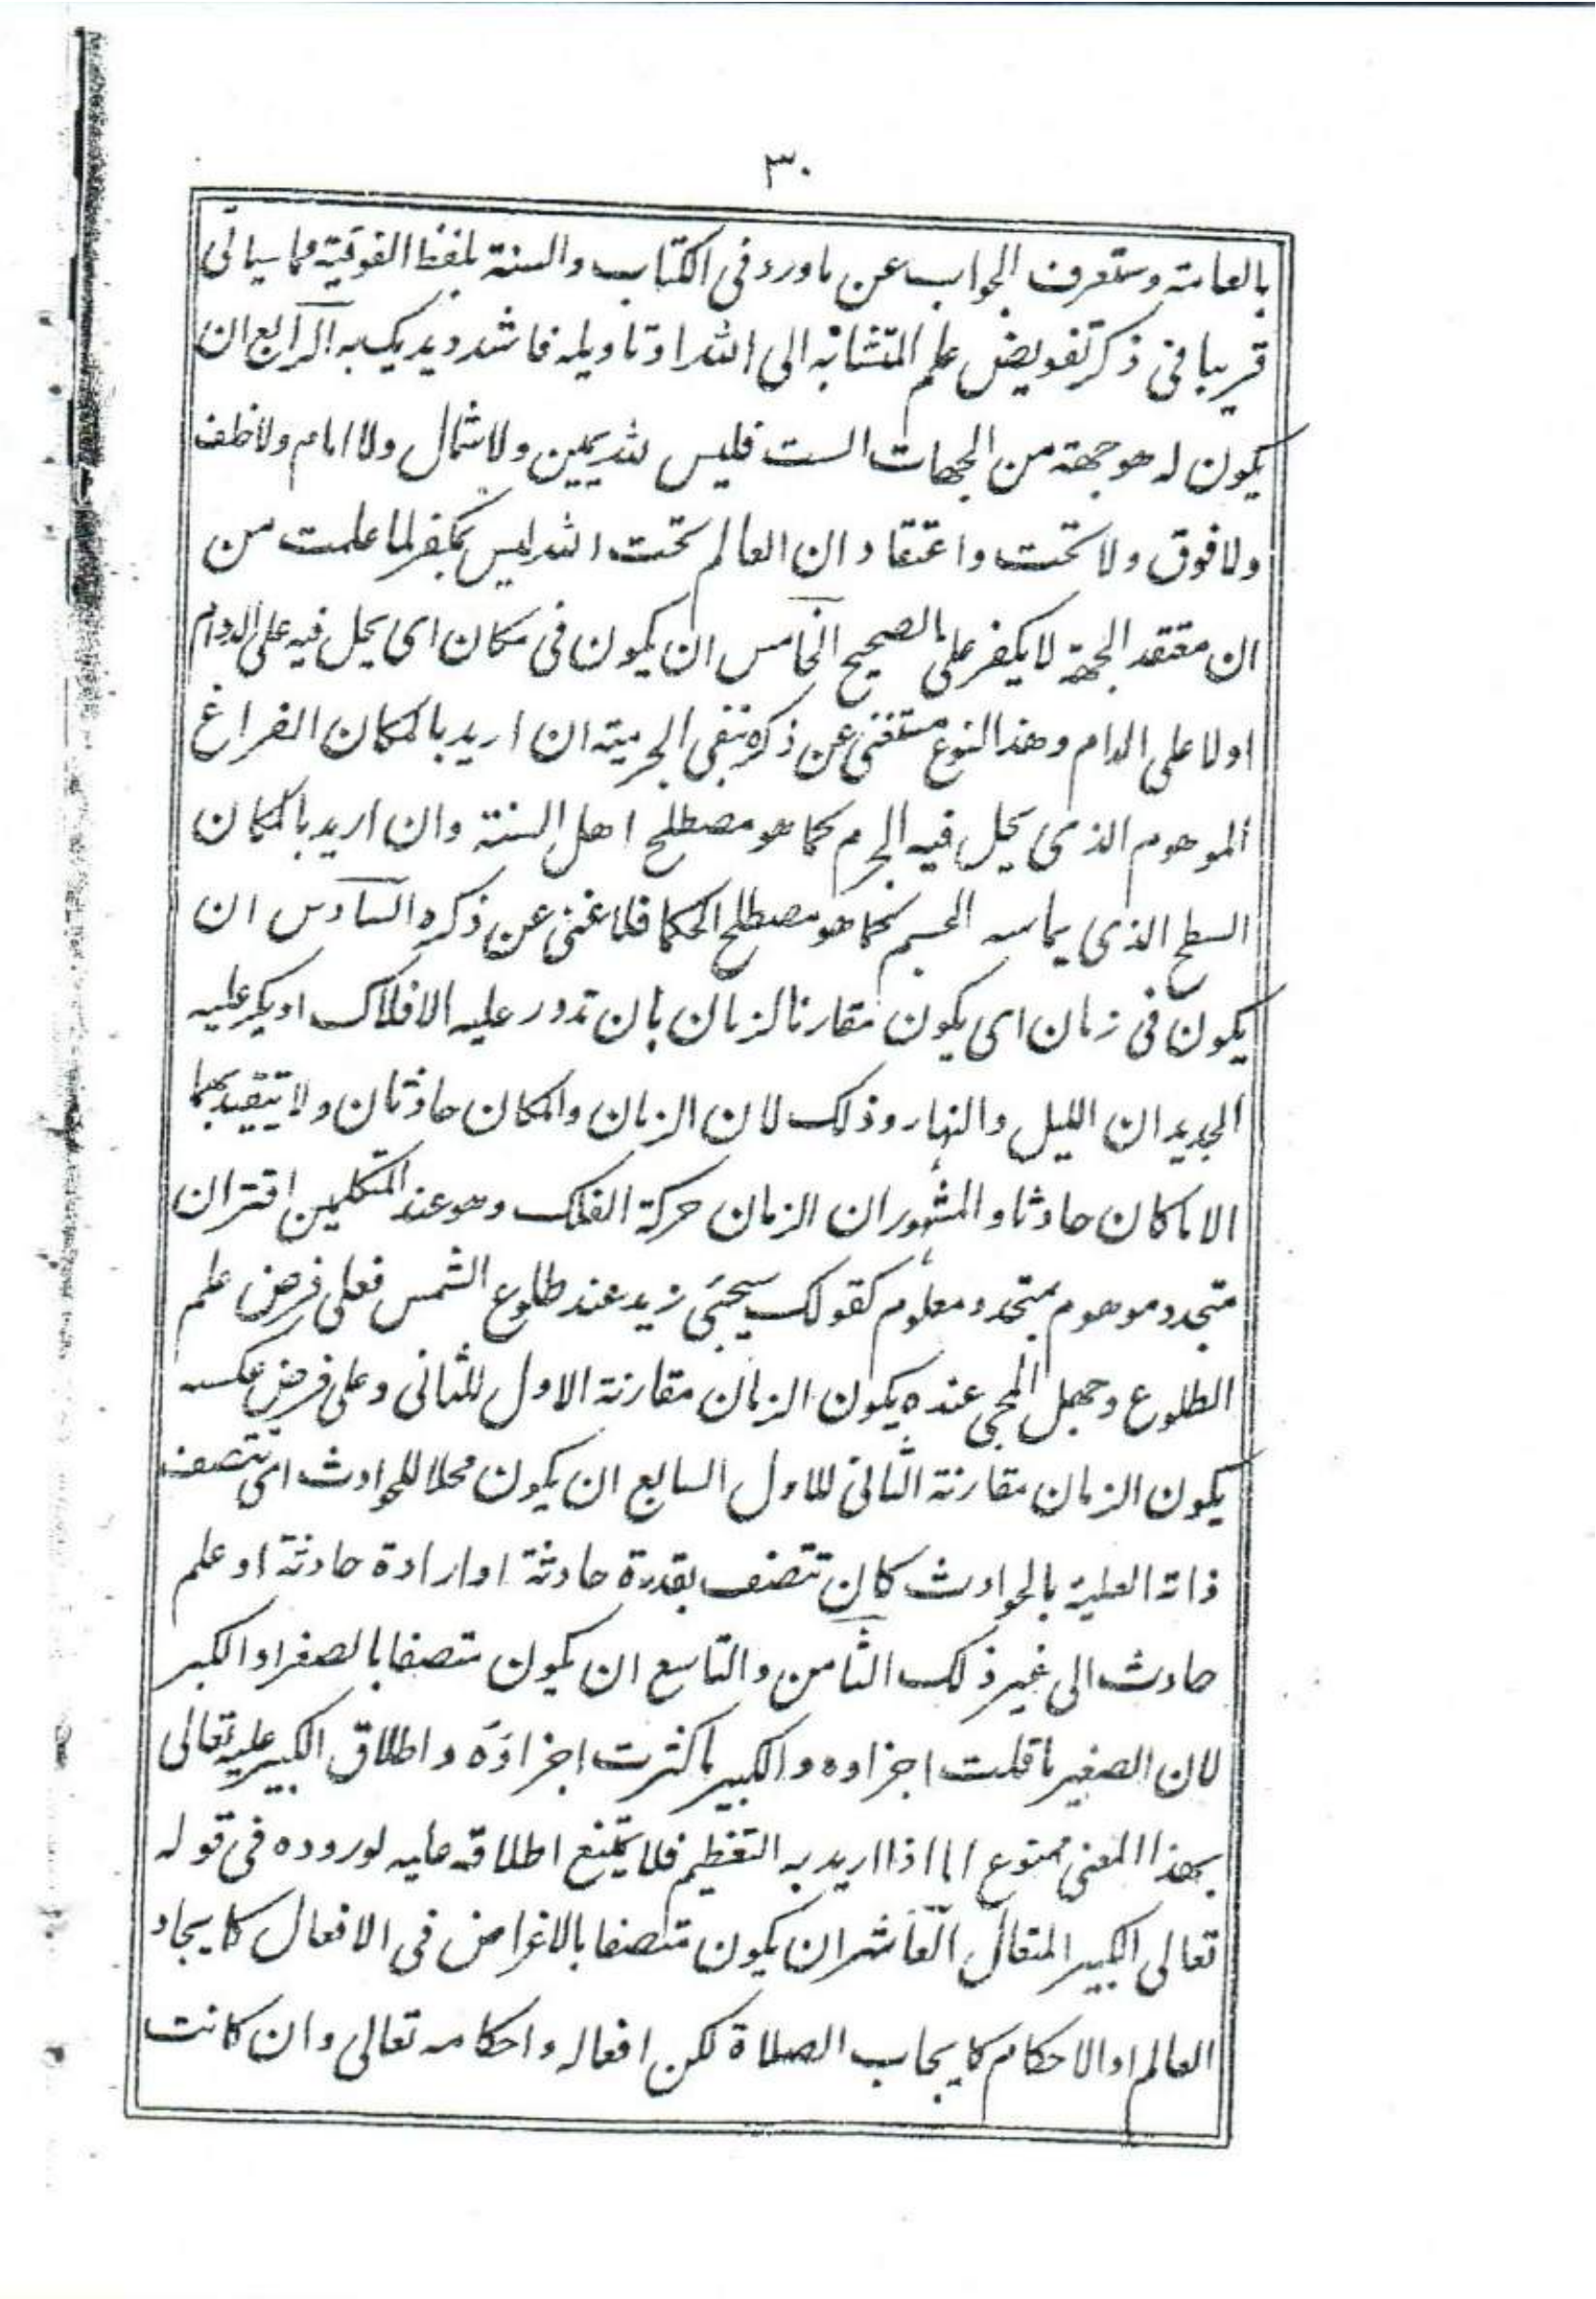 ٣٠
بالعامة وستعرف الجواب عن ماورد فى الكتاب والسنة بلفظ الفوقية مما سيأتى
قريبا فى ذكر تفويض علم المتشابه الى الله او تاويله فاشدد يديك به الرابع ان
يكون له هو جهة من الجهات الست فليس لله يمين ولا شمال ولا امام ولا خلف
ولا فوق ولا تحت واعتقاد ان العالم تحت الله ليس بكفر لما علمت من
ان معتقد الجهة لا يكفر على الصحيح الخامس ان يكون فى مكان اى يحل فيه على الدوام
اولا على الدام وهذا النوع مستغنى عن ذكره بنفى الجرمية ان اريد بالمكان الفراغ
الموهوم الذى يحل فيه الجرم كما هو مصطلح اهل السنة وان اريد بالمكان
السطح الذى يماسه الجسم كما هو مصطلح الحكما فلا غنى عن ذكره السادس ان
يكون فى زمان اى يكون مقارنا لزمان بان تدور عليه الافلاك او يكر عليه
الجديدان الليل والنهار وذلك لان الزمان والمكان حادثان ولا يتقيد بهما
الا ما كان حادثا والمشهور ان الزمان حركة الفلك وهو عند المتكلمين اقتران
متجدد موهوم بمتجدد معلوم كقولك سيجئى زيد عند طلوع الشمس فعلى فرض علم
الطلوع وجهل المجى عنده يكون الزمان مقارنة الاول للثانى وعلى فرض عكسه
يكون الزمان مقارنة الثانى للاول السابع ان يكون محلا للحوادث اى تتصف
ذاته العلية بالحوادث كان تتصف بقدرة حادثة او ارادة حادثة او علم
حادث الى غير ذلك الثامن والتاسع ان يكون متصفا بالصغر او الكبر
لان الصغير ما قلت اجزاوه والكبير ما كثرت اجزاؤه واطلاق الكبير عليه تعالى
بهذا المعنى ممنوع اما اذا اريد به التعظيم فلا يمتنع اطلاقه عليه لوروده فى قوله
تعالى الكبير المتعال العاشر ان يكون متصفا بالاغراض فى الافعال كايجاد
العالم او الاحكام كايجاب الصلاة لكن افعاله واحكامه تعالى وان كانت